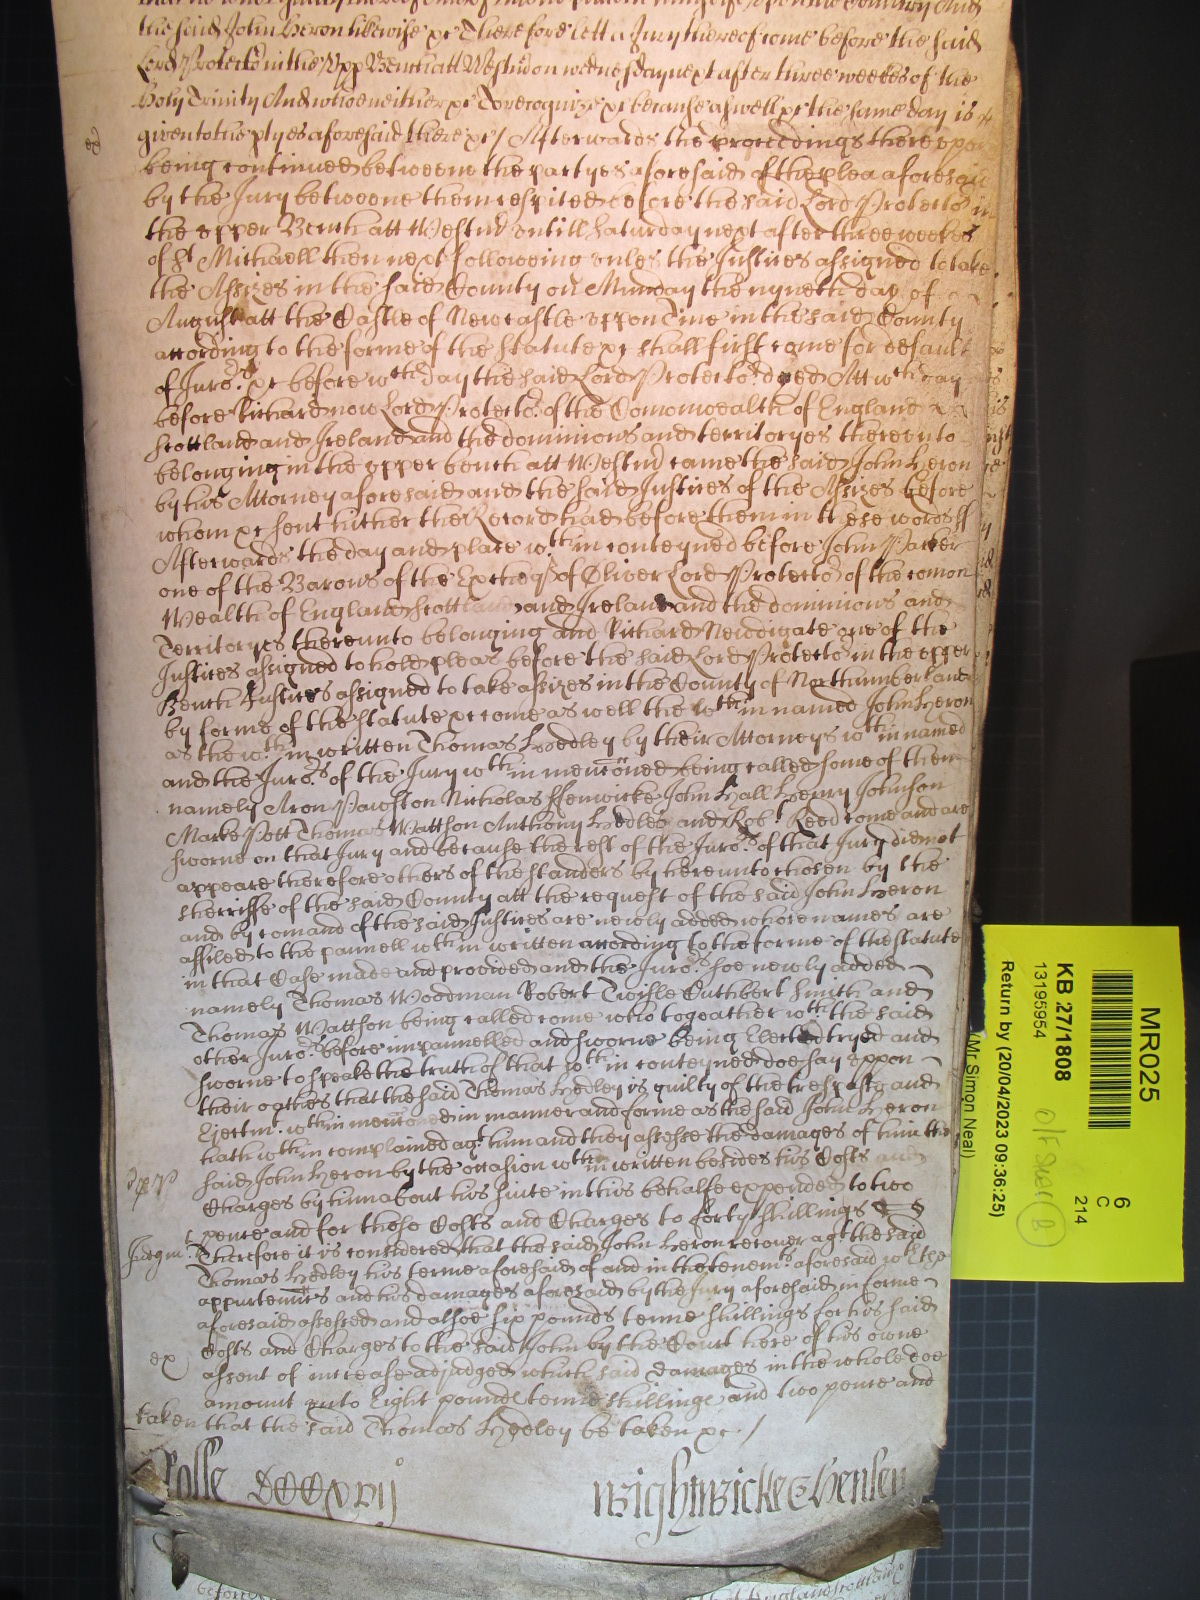 the said John Heron likewise xc Therefore lett a Jury thereof come before the said
Lord Protector in the Upp Bench att Westm on wednesday next after three weekes of the
Holy Trinity And who neither xc To recognize xc because aswell xc the same day is
given to the ptyes aforesaid there xc / Afterwards the proceedings thereupon
being continued betweene the partyes aforesaid of the plea aforesaid
by the Jury betweene them respited before the said Lord Protector in
the upper Bench att Westm untill Saturday next after three weekes
of St Michaell then next following unles the Justices assigned to take
the Assizes in the said County on Munday the nyneth day of
August att the Castle of Newcastle uppon Tine in the said County
according to the forme of the statute xc shall first come for default
of Juro.rs xc before wch day the said Lord Protector dyed Att wch day
before Richard now Lord Protector of the Comonwealth of England
Scottland and Ireland and the dominions and territoryes thereunto
belonging in the upper bench att Westm came the said John Heron
by his Attorney aforesaid and the said Justices of the Assizes before
whom xc sent hither the Record had before them in these words ss
Afterwards the day and place wthin conteyned before John Parker
one of the Barons of the Excheqr of Oliver Lord Protector of the comon
Wealth of England Scottland and Ireland and the dominions and
Territoryes thereunto belonging and Richard Newdigate one of the
Justices assigned to hold pleas before the said Lord Protector in the upper
Bench Justices assigned to take assizes in the County of Northumberland
by forme of the statute xc come as well the wthin named John Heron
as the wthin written Thomas Hedley by their Attorneys wthin named
and the Juro.rs of the Jury wthin menconed being called some of them
namely Aron Pawston Nicholas ffenwicke John Hall Henry Johnson
Marke Pott Thomas Wattson Anthony Hedley and Robt Reed come and are
sworne on that Jury and because the rest of the Juro.rs of that Jury did not
appeare therefore others of the standers by hereunto chosen by the
sherriffe of the said County att the request of the said John Heron
and by comand of the said Justices are newly added whose names are
affiled to the pannell wthin written according to the forme of the statute
in that Case made and provided and the Juro.rs soe newly added
namely Thomas Woodman Robert Twisle Cuthbert Smith and
Thomas Wattson being called come who togeather wth the said
other Juro.rs before impannelled and sworne being Elected tryed and
sworne to speake the truth of that wthin conteyned doe say uppon
their oathes that the said Thomas Hedley is guilty of the trespasse and
Ejectmt wthin menconed in manner and forme as the said John Heron
hath wthin complained agt him and they assesse the damages of him the
said John Heron by the occasion wthin written besides his Costs and
Charges by him about his suite in this behalfe expended to two
pence and for those Costs and Charges to forty shillings
Judgmt Therefore it is considered that the said John Heron recover agt the said
Thomas Hedley his terme aforesaid of and in the tenemts aforesaid wth the
appurtenncs and his damages aforesaid by the Jury aforesaid in forme
aforesaid assessed and alsoe six pounds tenne shillings for his said
Costs and Charges to the said John by the Court here of his owne
assent of increase adjudged which said damages in the whole doe
amount unto Eight pounds tenne shillings and two pence and
taken that the said Thomas Hedley be taken xc /
Rolle
Wightwicke & Hensley
MR025
6
C
214
KB 27/1808
13195954
Return by (20/04/2023 09:36:25)
(Mr Simon Neal)